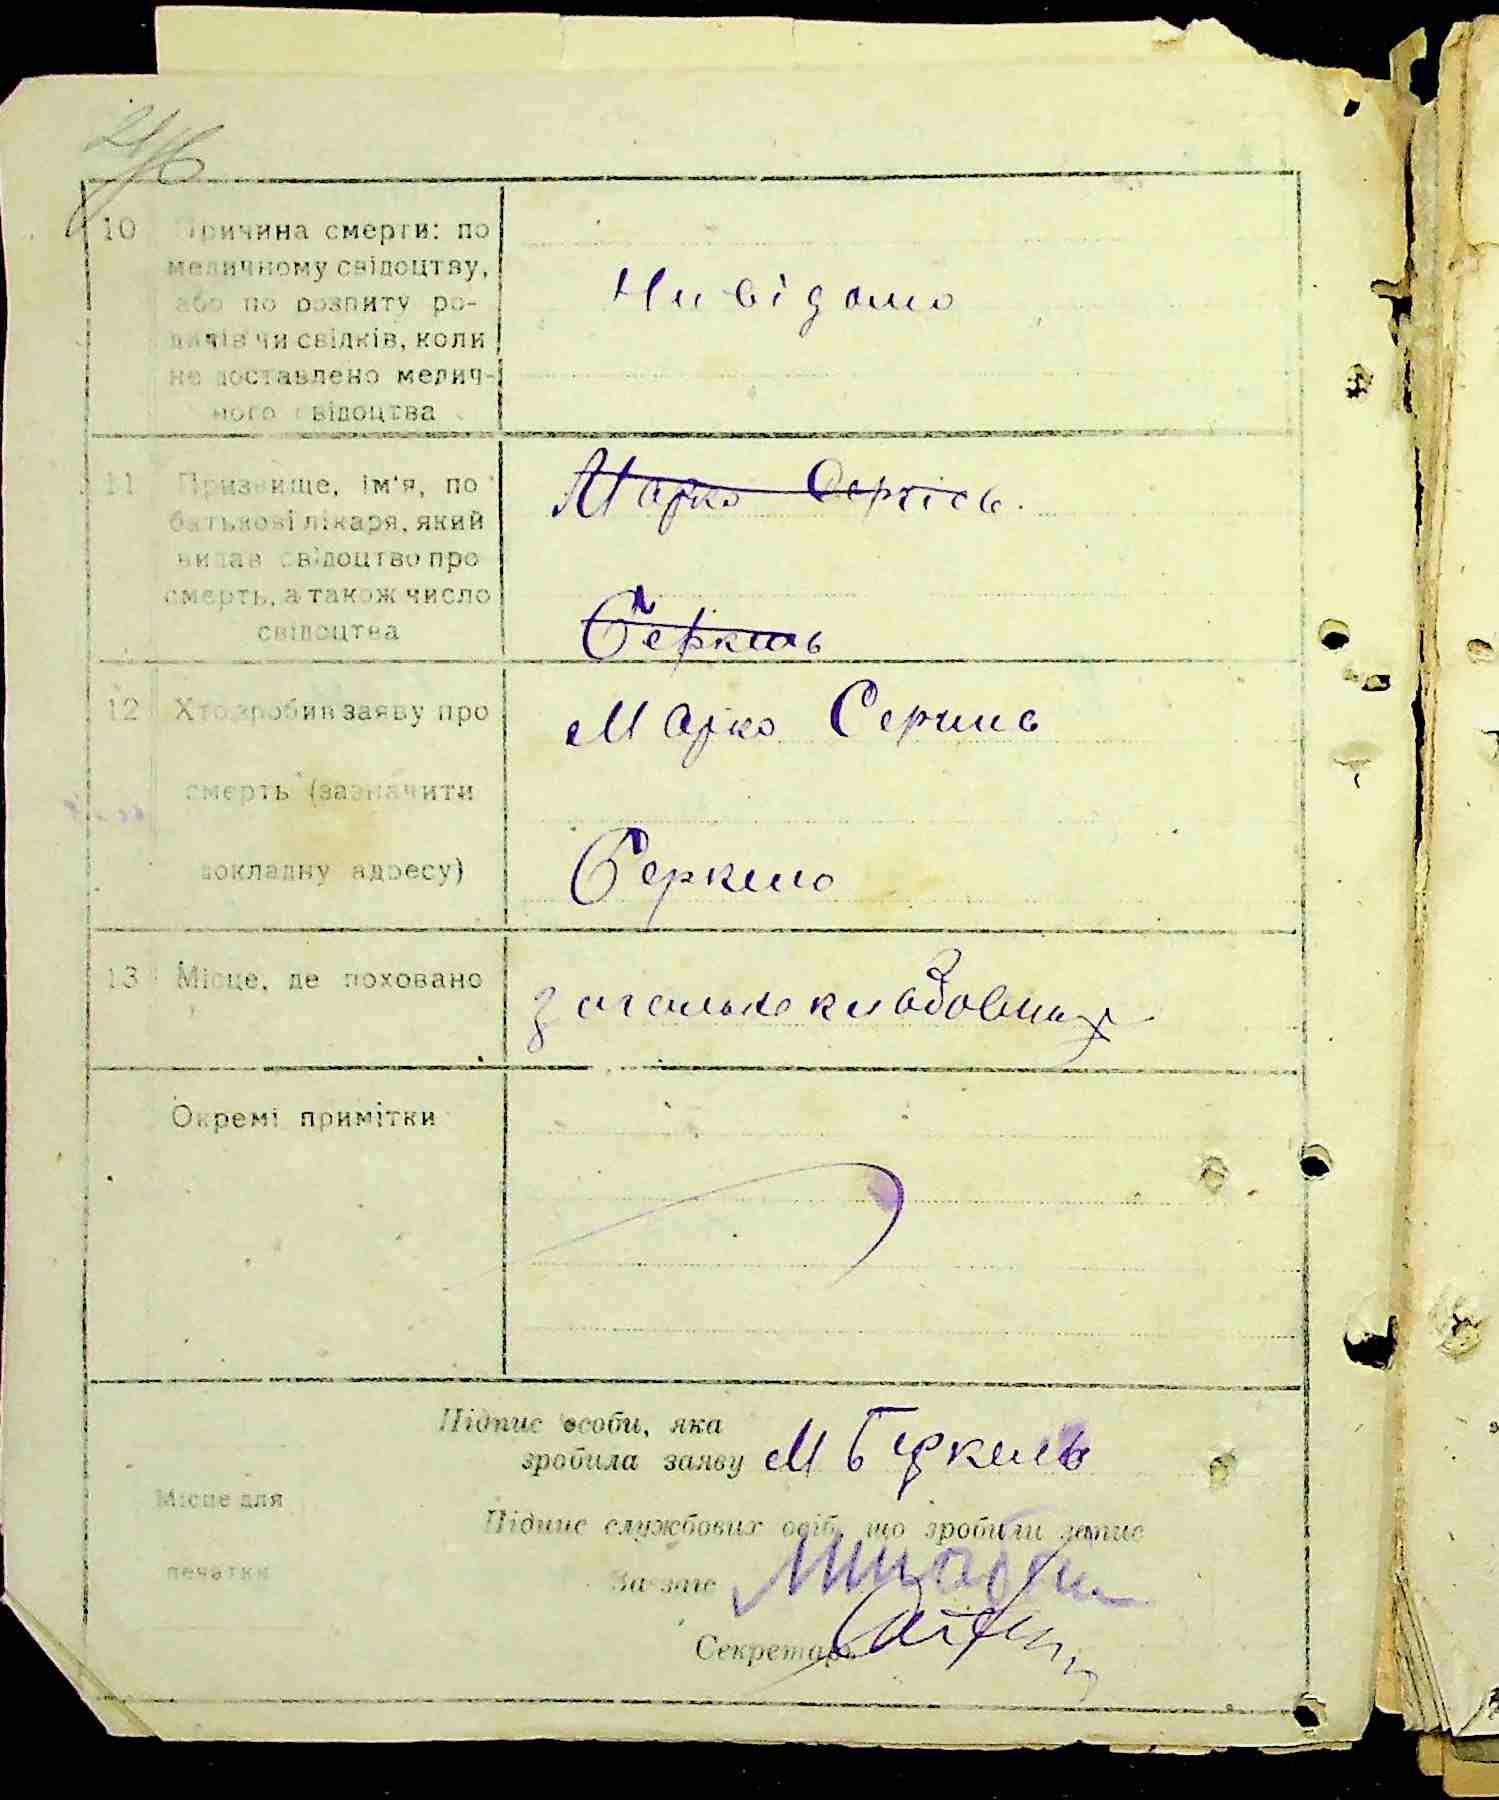 10 Причина смерти: по
медичному свідоцтву,
або по розпиту ро-
дичів чи свідків, коли
не доставлено медич-
ного свідоцтва
Нивідомо
11 Призвище, ім'я, по
батькові лікаря, який
видав свідоцтво про
смерть, а також число
свідоцтва
Марко
12 Хто зробив заяву про
смерть (зазначити
докладну адресу)
Марко
13 Місце, де поховано
Окремі примітки
Підпис особи, яка
зробила заяву М
Підпис службових осіб, що зробили запис
Зав загс
Секретарь
Місце для
печатки